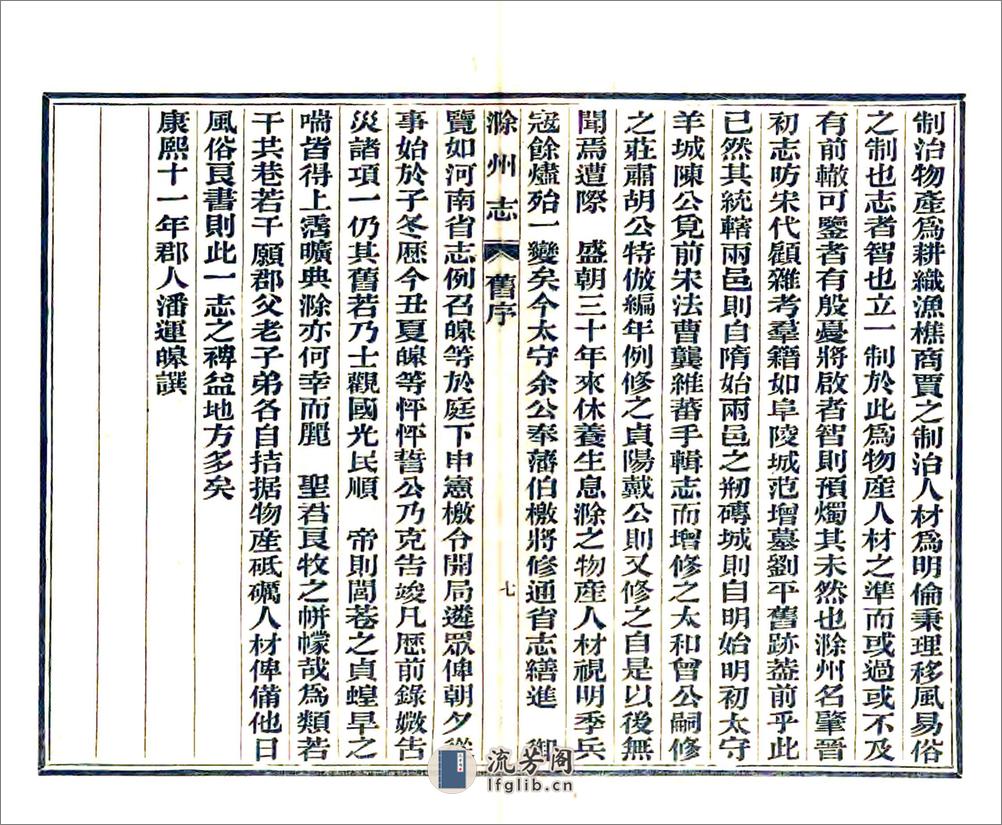 制治物產爲耕織漁樵商賈之制治人材爲明倫秉理移風易俗
之制也志者智也立一制於此爲物産人材之準而或過或不及
有前轍可鑒者有殷憂將啟者智則預燭其未然也滁州名肇晉
初志昉宋代顧雜考羣籍如阜陵城范增墓劉平舊跡葢前乎此
已然其統轄兩邑則自隋始兩邑之剏磚城則自明始明初太守
羊城陳公覓前宋法曹龔維蕃手輯志而增修之太和曾公嗣修
之莊肅胡公特倣編年例修之貞陽戴公則又修之自是以後無
聞焉遭際　盛朝三十年來休養生息滁之物產人材視明季兵
寇餘燼殆一變矣今太守余公奉藩伯檄將修通省志繕進　御
滁州志　舊序　七
覽如河南省志例召皞等於庭下申憲檄令開局遴眾俾朝夕從
事始於子冬歷今丑夏皞等怦怦誓公乃克告竣凡歷前錄媺吿
災諸項一仍其舊若乃士觀國光民順　帝則閭巷之貞蝗旱之
喘皆得上霑曠典滁亦何幸而麗　聖君良牧之帡幪哉爲類若
干共巷若干願郡父老子弟各自拮据物産砥礪人材俾備他日
風俗良書則此一志之裨益地方多矣
康熙十一年郡人潘運皞譔
流芳阁
lfglib.cn